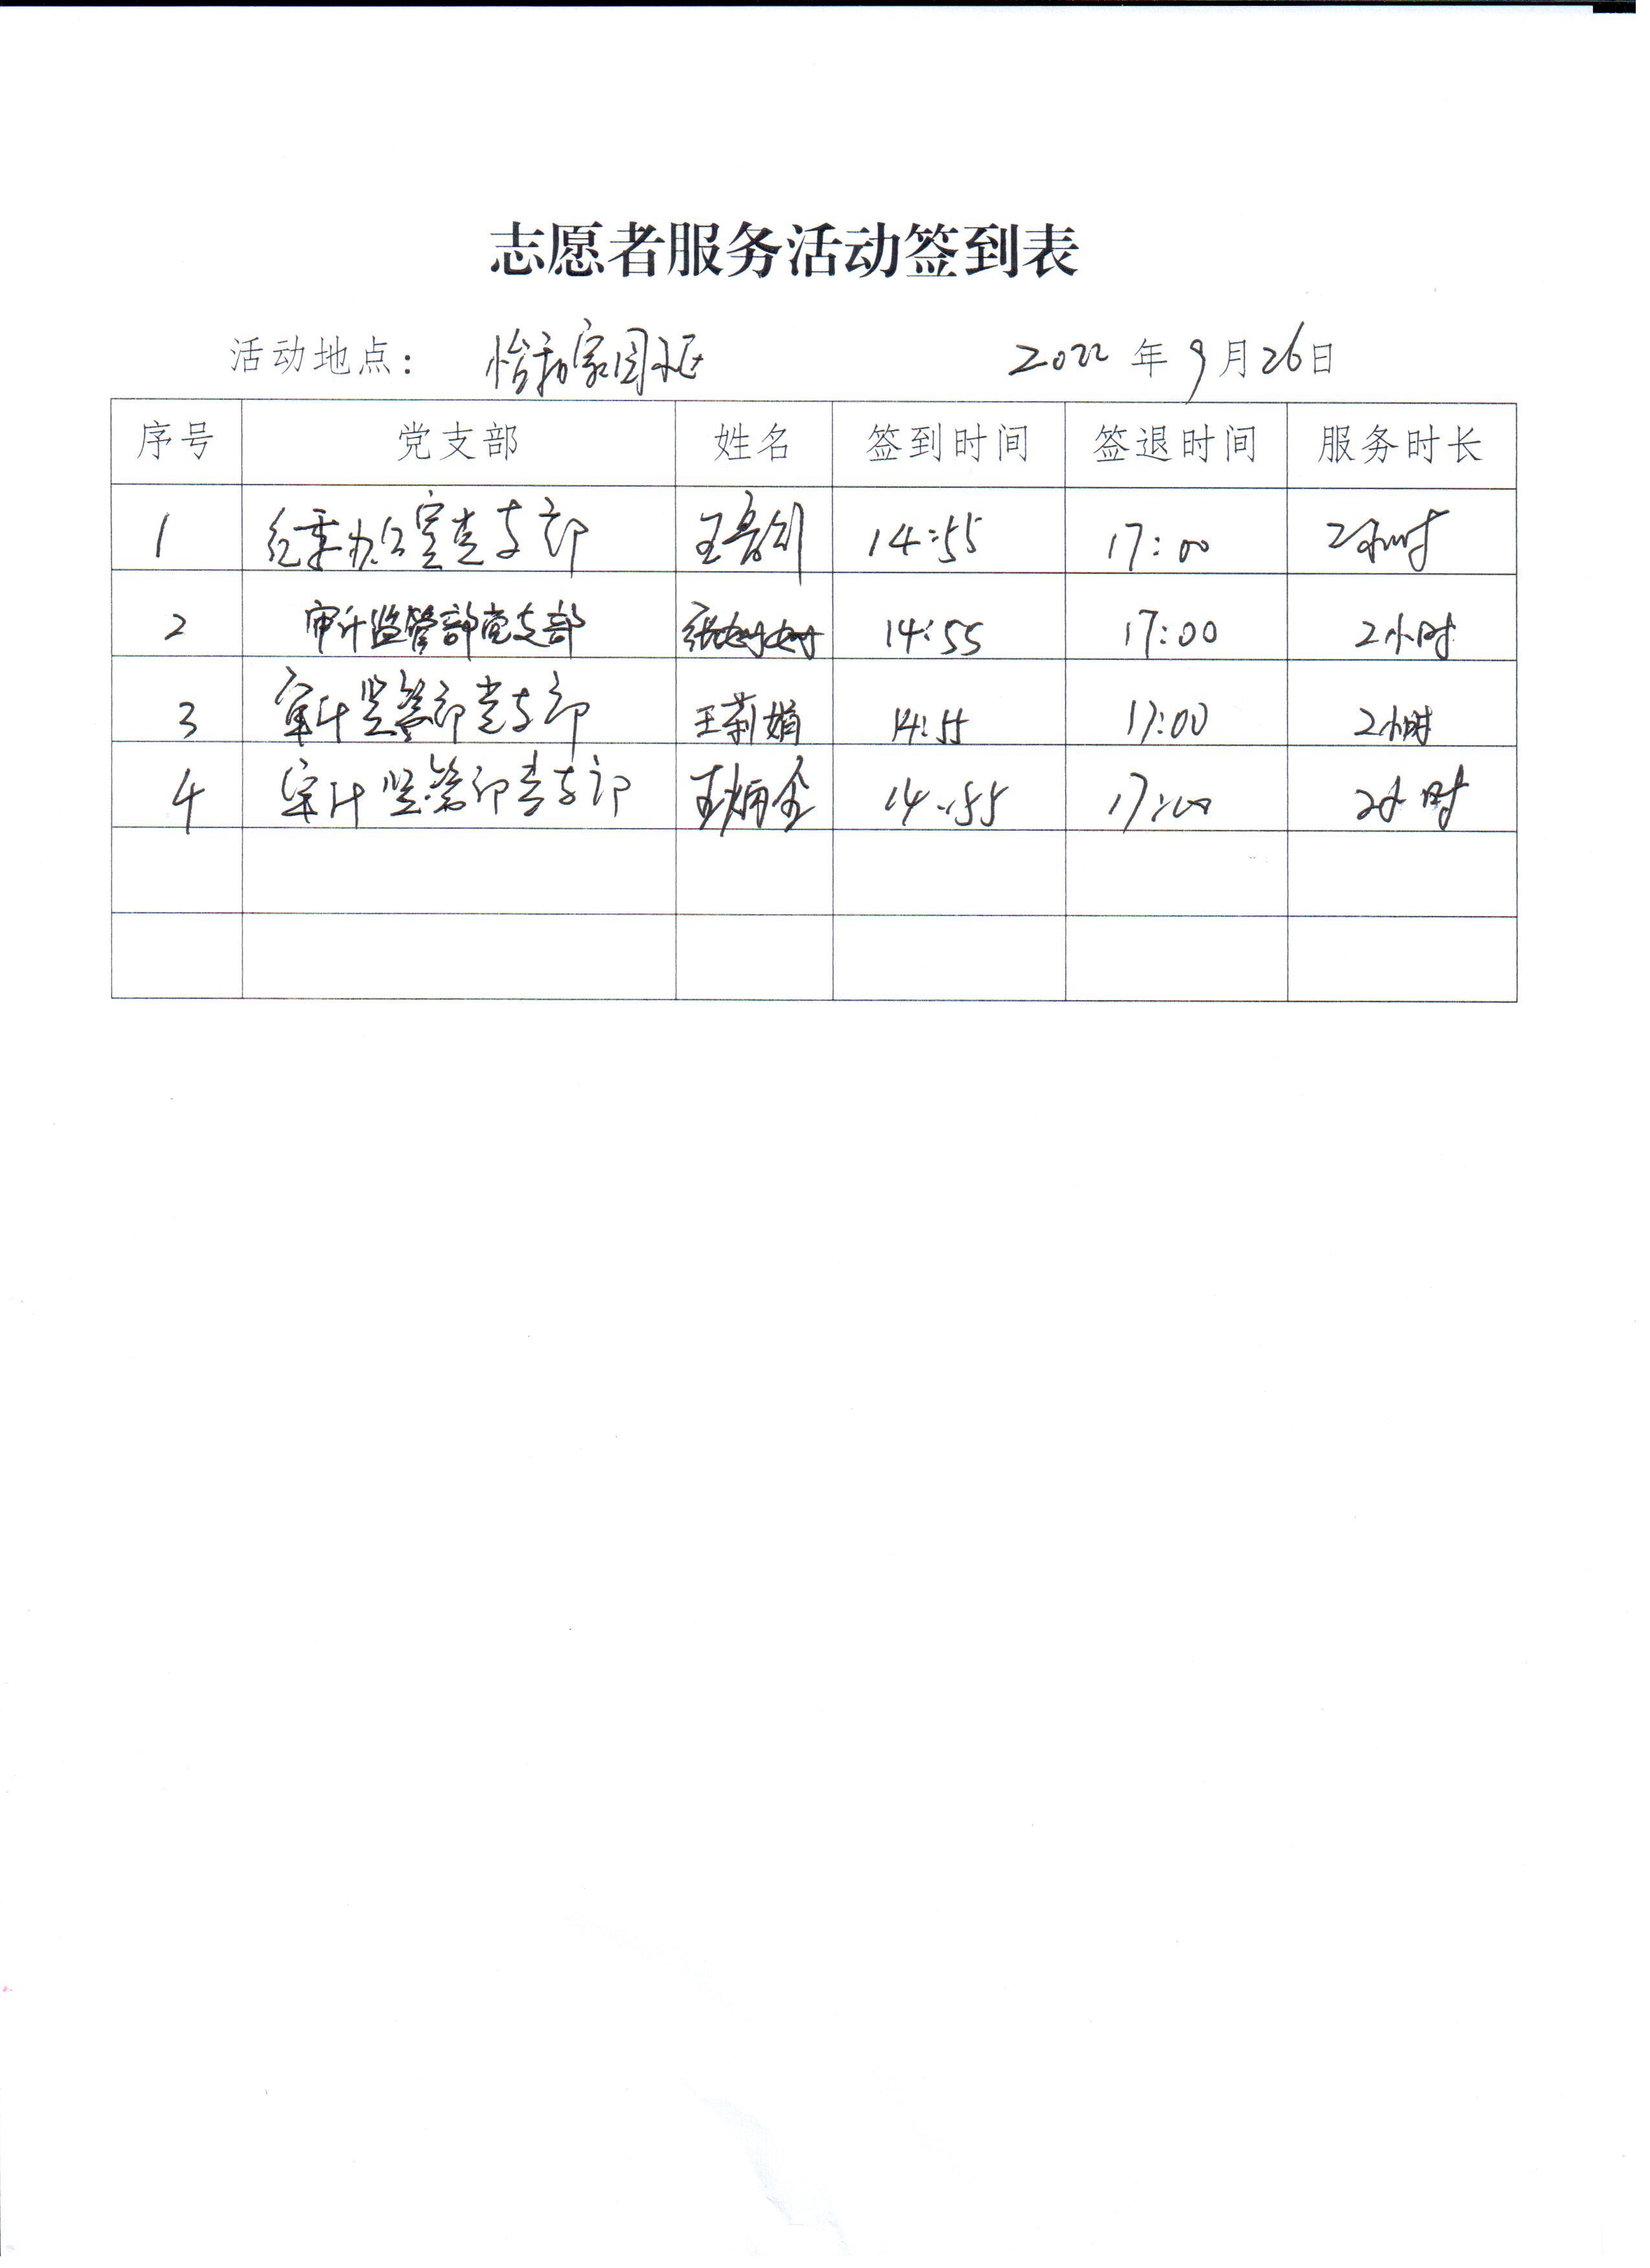 志愿者服务活动签到表
活动地点： 怡和家园社区 2022 年 9 月 26 日
序号 党支部 姓名 签到时间 签退时间 服务时长
1 纪委办公室党支部 14:55 17:00 2小时
2 审计监管部党支部 14:55 17:00 2小时
3 审计监管部党支部 王莉娟 14:55 17:00 2小时
4 审计监管部党支部 王炳全 14:55 17:00 2小时